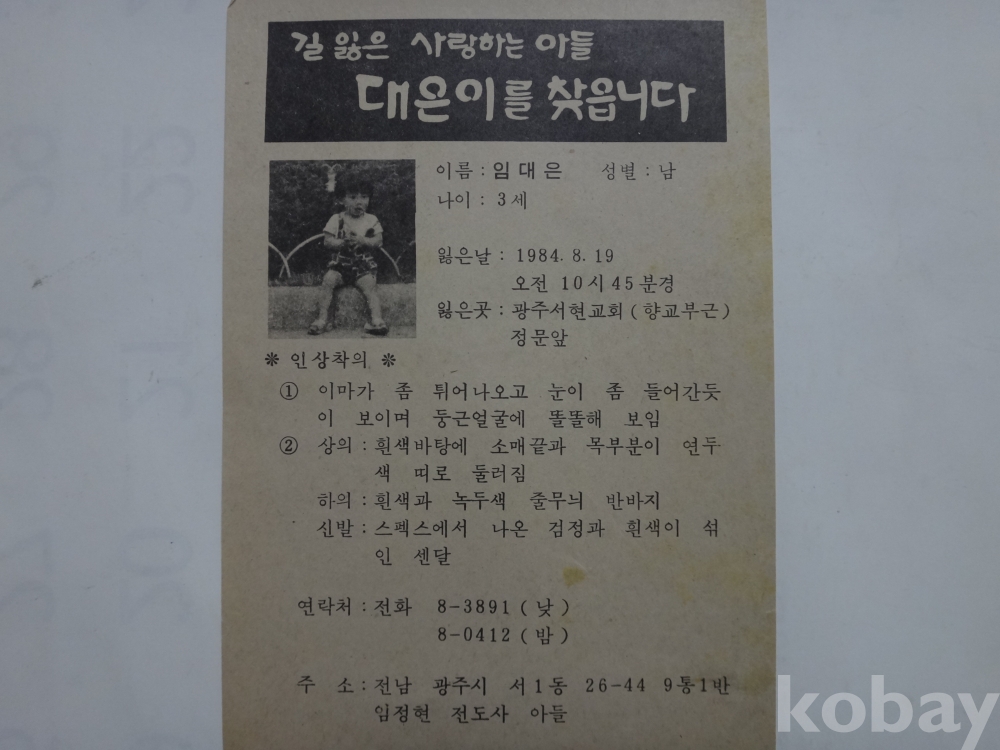 길 잃은 사랑하는 아들
대은이를 찾읍니다
이름 : 임대은 성별 : 남
나이 : 3세
잃은날 : 1984. 8. 19
오전 10시 45분경
잃은곳 : 광주서현교회 (향교부근)
정문앞
※ 인상착의 ※
① 이마가 좀 튀어나오고 눈이 좀 들어간듯
이 보이며 둥근얼굴에 똘똘해 보임
② 상의 : 흰색바탕에 소매끝과 목부분이 연두
색 띠로 둘러짐
하의 : 흰색과 녹두색 줄무늬 반바지
신발 : 스펙스에서 나온 검정과 흰색이 섞
인 센달
연락처 : 전화 8-3891 (낮)
8-0412 (밤)
주 소 : 전남 광주시 서1동 26-44 9통1반
임정현 전도사 아들
kobay